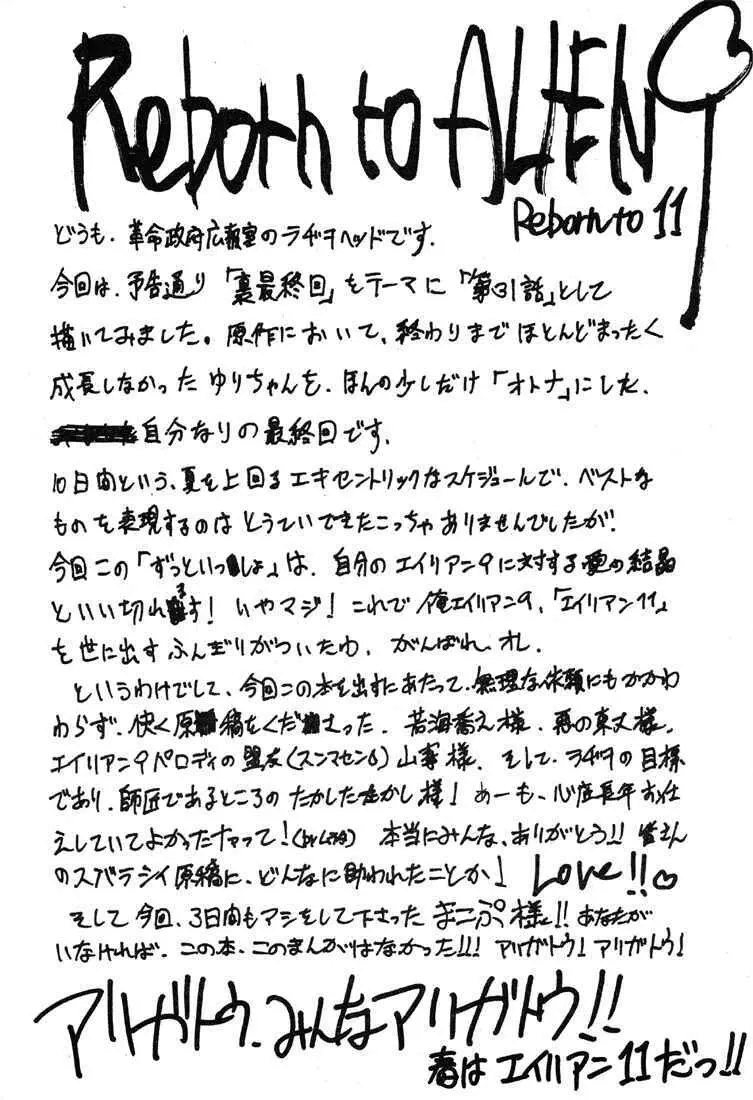 Reborn to ALIEN9
Reborn to 11
どうも、革命政府広報室のラヂヲヘッドです.
今回は、予告通り「裏最終回」をテーマに「第31話」として
描いてみました。原作において、終わりまでほとんどまったく
成長しなかったゆりちゃんを、ほんの少しだけ「オトナ」にした、
自分なりの最終回です.
10日間という、夏を上回るエキセントリックなスケジュールで、ベストな
ものを表現するのはとうていできたこっちゃありませんでしたが、
今回この「ずっといっしょ」は、自分のエイリアン9に対する愛の結晶
といい切れます! いやマジ! これで俺エイリアン9、「エイリアン11」
を世に出すふんぎりがついたわ、がんばれ、オレ.
というわけでして、今回この本を出すにあたって、無理な依頼にもかかわ
わらず、快く原稿をくださった、若海 様、悪の東丈様、
エイリアン9パロディの盟友(スンマセン6)山 様、そして、ラヂヲの目標
であり、師匠であるところのたかしたたかし様! あーも、心底長年お仕
えしていてよかったナァって! 本当にみんな、ありがとう!! 皆さん
のスバラシイ原稿に、どんなに助われたことか! Love!!♡
そして今回、3日間もアシをして下さったまこぷ様!! あなたが
いなければ、この本、このまんがはなかった!!! アリガトウ! アリガトウ!
アリガトウ、みんなアリガトウ!!
春はエイリアン11だっ!!